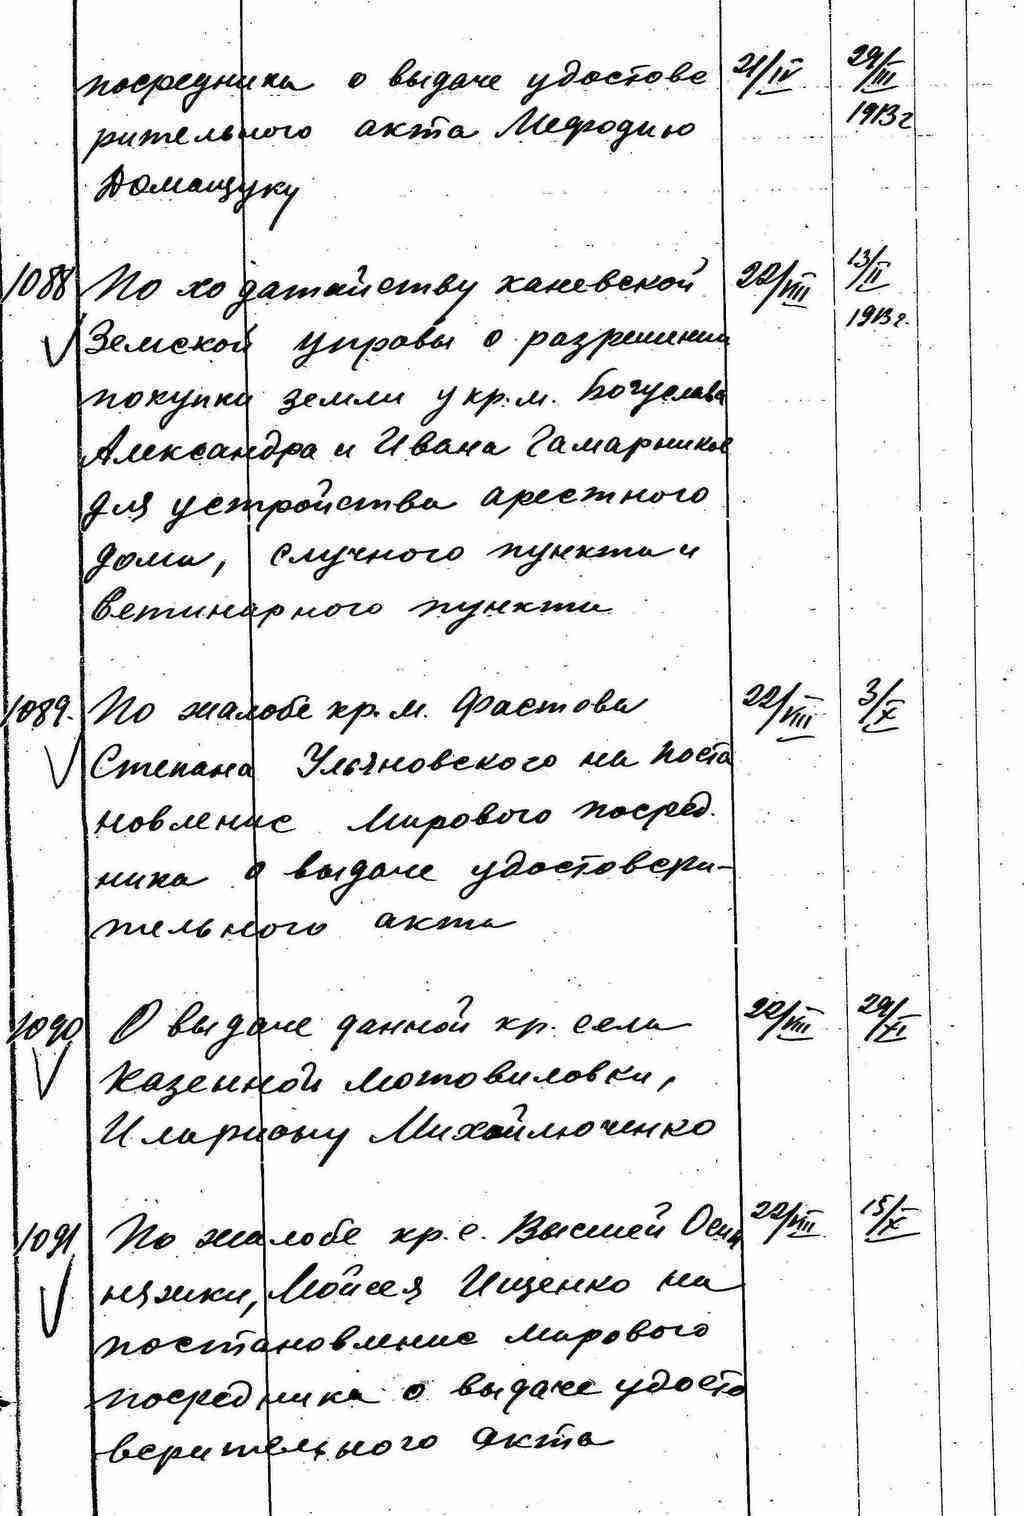 посредника о выдаче удостове 21/IV 29/III
рительного акта Мефодию 1913 г
Домащуку
1088 По ходатайству каневской 22/VIII 13/II
Земской управы о разрешении 1913 г.
покупки земли у кр. м. Богуслава
Александра и Ивана Гамарников
для устройства арестного
дома, случного пункта и
ветинарного пункта
1089. По жалобе кр. м. Фастова 22/VIII 3/X
Степана Ульяновского на поста
новление Мирового посред.
ника о выдаче удостовери-
тельного акта
1090 О выдаче данной кр. села 22/VIII 29/XI
Казенной Мотовиловки,
Илариону Михайлюченко
1091 По жалобе кр. с. Высшей Осит 22/VIII 15/X
няжки, Мойсея Ищенко на
постановление мирового
посредника о выдаче удосто
верительного акта